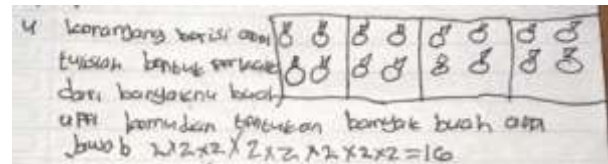 4 keranjang berisi apel
tulislah bentuk perkalian
dari banyaknu buah
apel kemudian tentukan banyak buah apel
Jawab 2x2x2x2x2x2x2x2=16